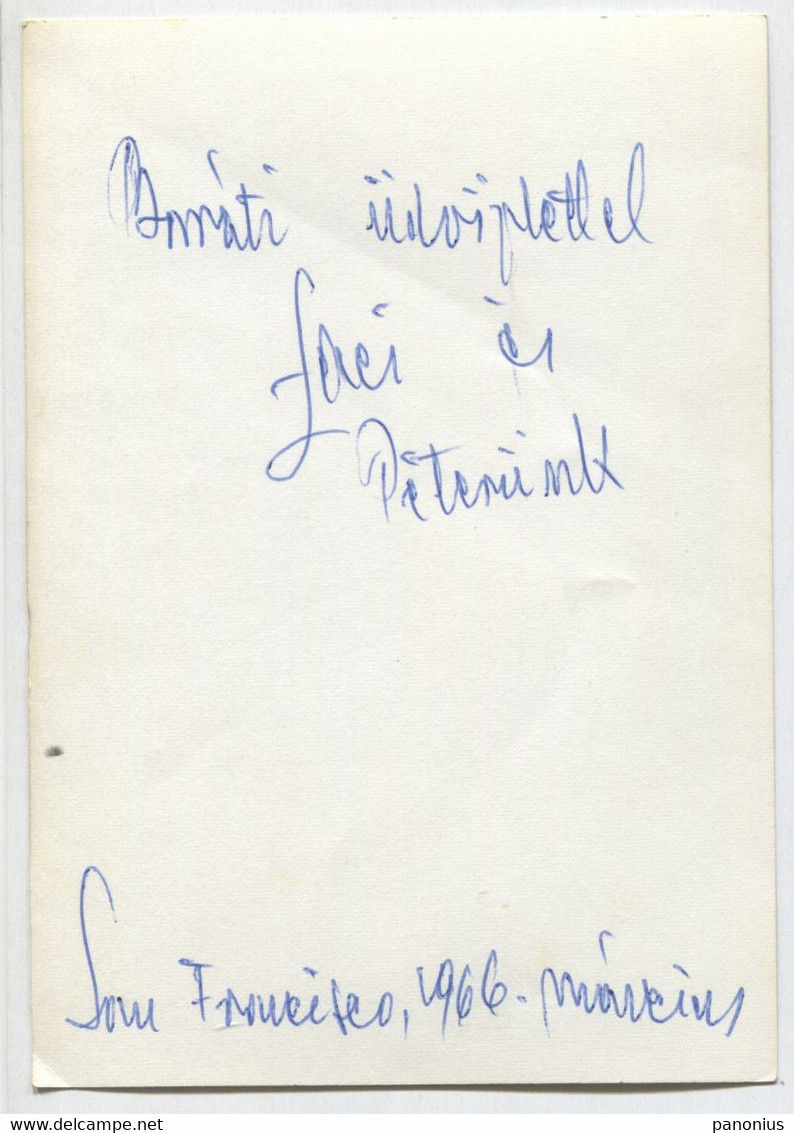 Baráti üdvözlettel
Laci és
Péterünk
San Francisco, 1966. március
delcampe.net
panonius